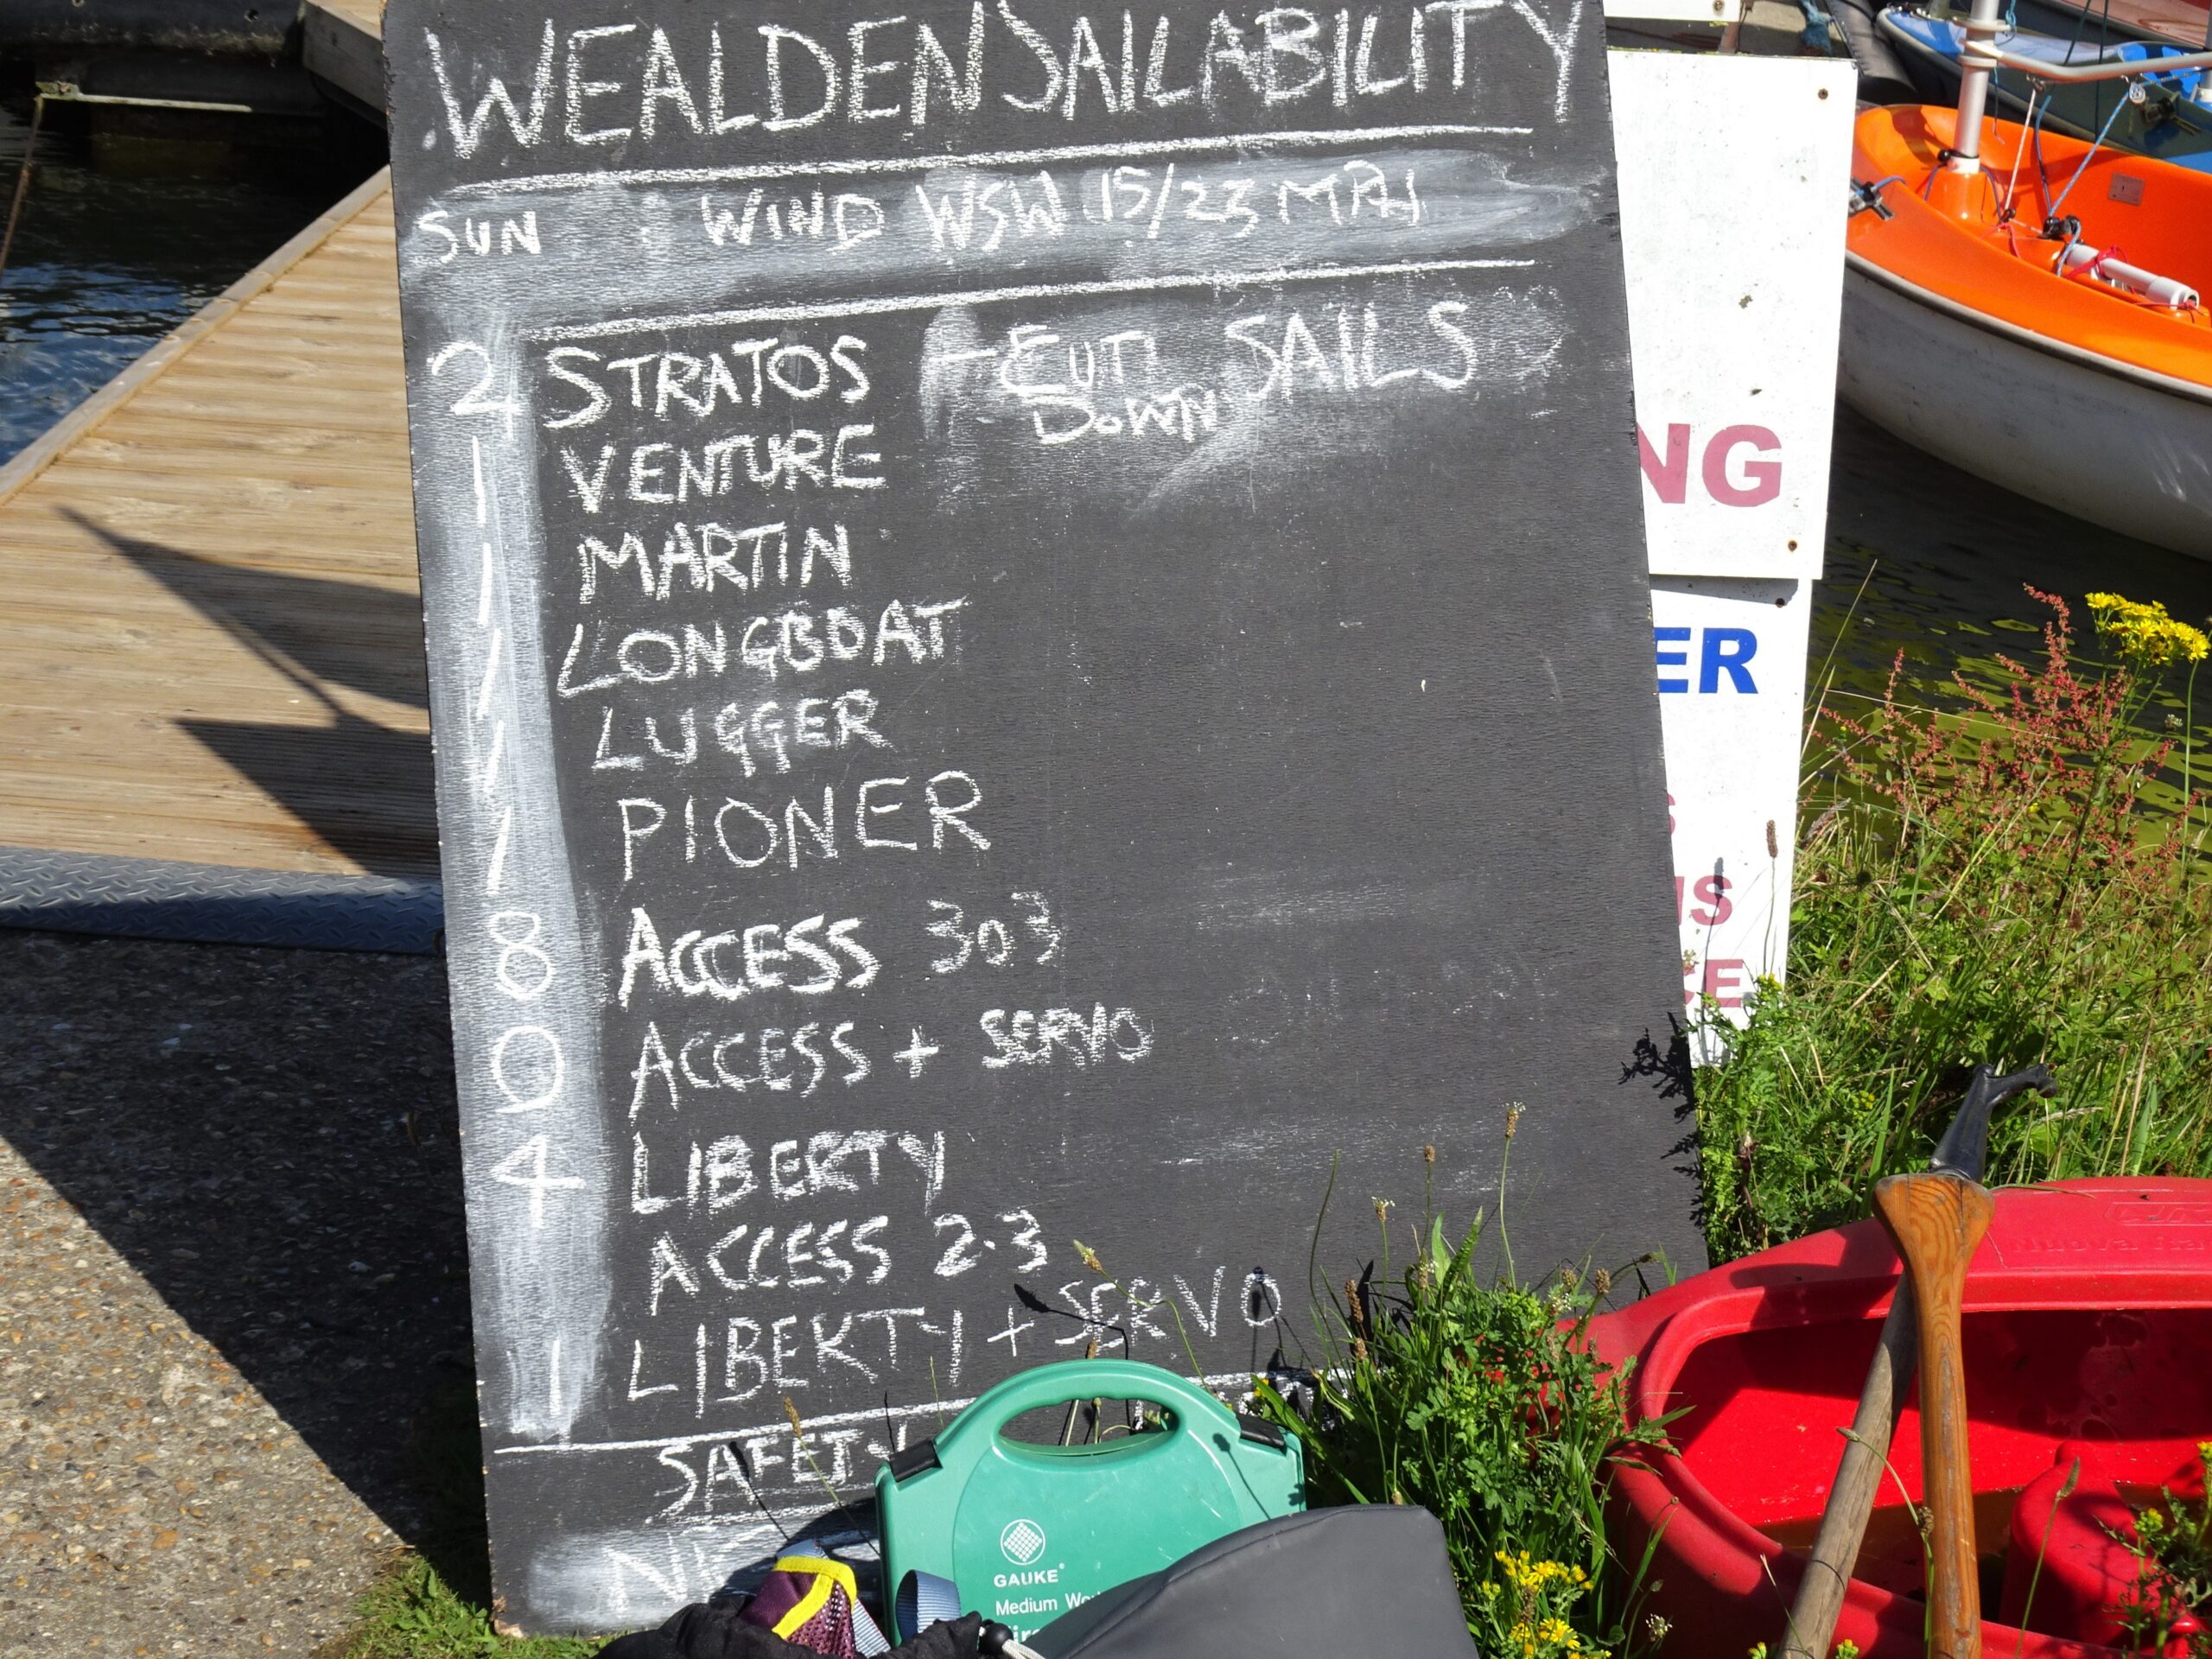 WEALDEN SAILABILITY
SUN WIND WSW 15/23 MPH
2 STRATOS - CUT DOWN SAILS
1 VENTURE
1 MARTIN
1 LONGBOAT
1 LUGGER
1 PIONER
8 ACCESS 303
0 ACCESS + SERVO
4 LIBERTY
ACCESS 2.3
1 LIBERTY + SERVO
SAFETY
NG
ER
S
NS
CE
GAUKE
Medium